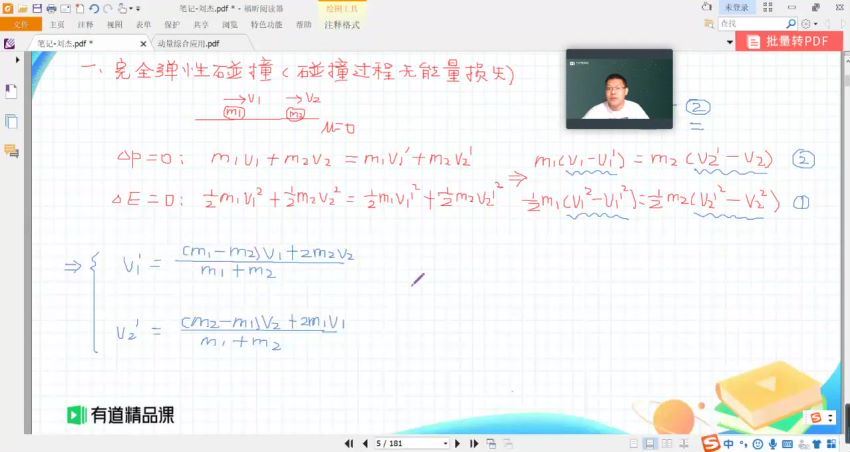 笔记-刘杰.pdf * - 福昕阅读器
绘图工具
未登录
文件 主页 注释 视图 表单 保护 共享 浏览 特色功能 帮助 注释格式
查找
笔记-刘杰.pdf *
动量综合应用.pdf
批量转PDF
一、完全弹性碰撞(碰撞过程无能量损失)
→V1 →V2
m1 m2
μ=0
②
=
ΔP=0: m1V1+m2V2=m1V1'+m2V2' ⇒ m1(V1-V1')=m2(V2'-V2) ②
ΔE=0: ½m1V1²+½m2V2²=½m1V1'²+½m2V2'² ½m1(V1²-V1'²)=½m2(V2'²-V2²) ①
⇒ { V1' = (m1-m2)V1+2m2V2 / m1+m2
V2' = (m2-m1)V2+2m1V1 / m1+m2
有道精品课
5 / 181
中